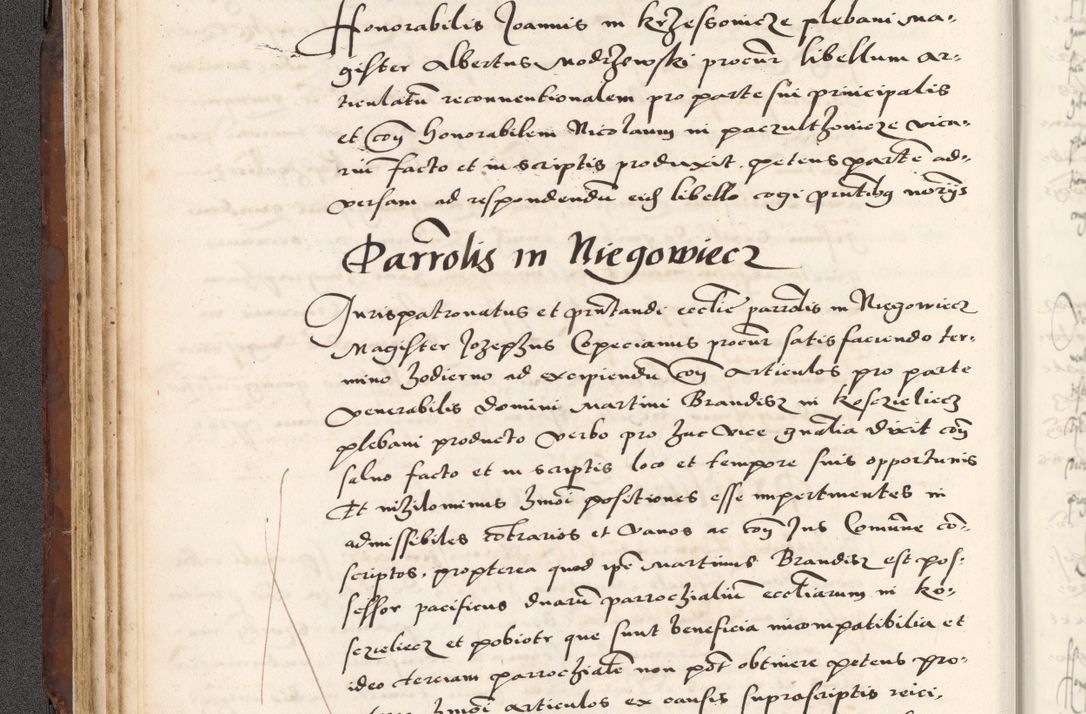 Honorabilis Joannis in krzessonicze plebani Ma-
gister Albertus Modrzewski procur libellum ar-
ticulatu reconventionalem pro parte sui principalis
et con honorabilem Nicolaum in paczulthonicze vica-
riu facto et in scriptis produxit petens parte ad-
versam ad respondendu eid libello cogi pntibus noriis
Parrolis in Niegowiecz
Jurispatronatus et pntandi ecclie parrolis in Niegowiecz
Magister Jozephus Copecianus procur satisfaciendo ter-
mino hodierno ad excipiendu con articulos pro parte
venerabilis domini Martini Brandisz in kosczieliecz
plebani producto verbo pro hac vice gnalia dixit con
salvo facto et in scriptis loco et tempore suis opportunis
Et nihilominus hmoi positiones esse impertinentes in
admissibiles cotrarios et vanos ac con Jus Comune co-
scriptos, propterea quod ipse Martinus Brandisz est pos-
sessor pacificus duaru parrochialiu eccliarum in ko-
sczieliecz et pobiotr que sunt beneficia incompatibilia et
ideo terciam parrochiale non pot obtinere petens pro-
hmoi articulos ex causis suprascriptis reici-